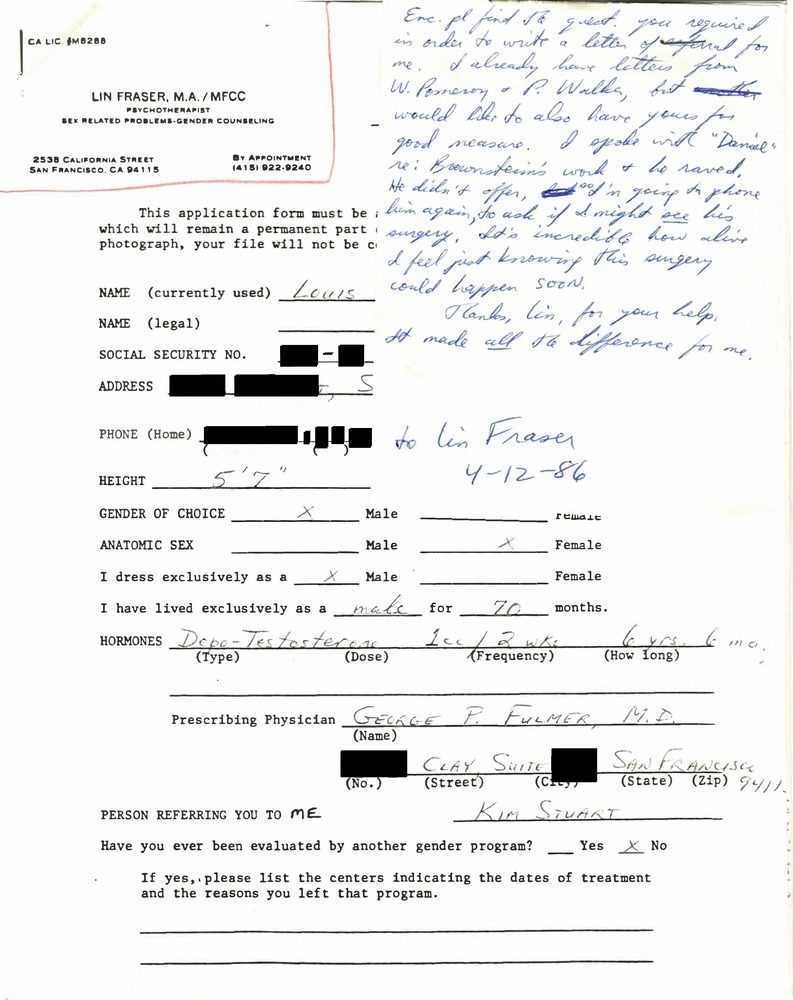 CA LIC. #M8288
LIN FRASER, M.A./MFCC
PSYCHOTHERAPIST
SEX RELATED PROBLEMS-GENDER COUNSELING
2538 CALIFORNIA STREET
SAN FRANCISCO. CA 94115
BY APPOINTMENT
(415) 922-9240
Enc. pl find the quest. you required
in order to write a letter of referral for
me. I already have letters from
W. Pomeroy & P. Walker, but
would like to also have yours for
good measure. I spoke with "Daniel"
re: Brownstein's work & he raved.
He didn't offer, I'm going to phone
him again, to ask if I might see his
surgery. It's incredible how alive
I feel just knowing this surgery
could happen soon.
Thanks, Lin, for your help.
It made all the difference for me.
to Lin Fraser
4-12-86
This application form must be
which will remain a permanent part
photograph, your file will not be
NAME (currently used) Louis
NAME (legal)
SOCIAL SECURITY NO. -
ADDRESS , S
PHONE (Home) ( )
HEIGHT 5'7"
GENDER OF CHOICE X Male Female
ANATOMIC SEX Male X Female
I dress exclusively as a X Male Female
I have lived exclusively as a male for 70 months.
HORMONES Depo-Testosterone 1cc / 2 wks 6 yrs. 6 mo.
(Type) (Dose) (Frequency) (How long)
Prescribing Physician GEORGE P. FULMER, M.D.
(Name)
CLAY SUITE SAN FRANCISCO
(No.) (Street) (City) (State) (Zip) 9411
PERSON REFERRING YOU TO ME KIM STUART
Have you ever been evaluated by another gender program? Yes X No
If yes, please list the centers indicating the dates of treatment
and the reasons you left that program.